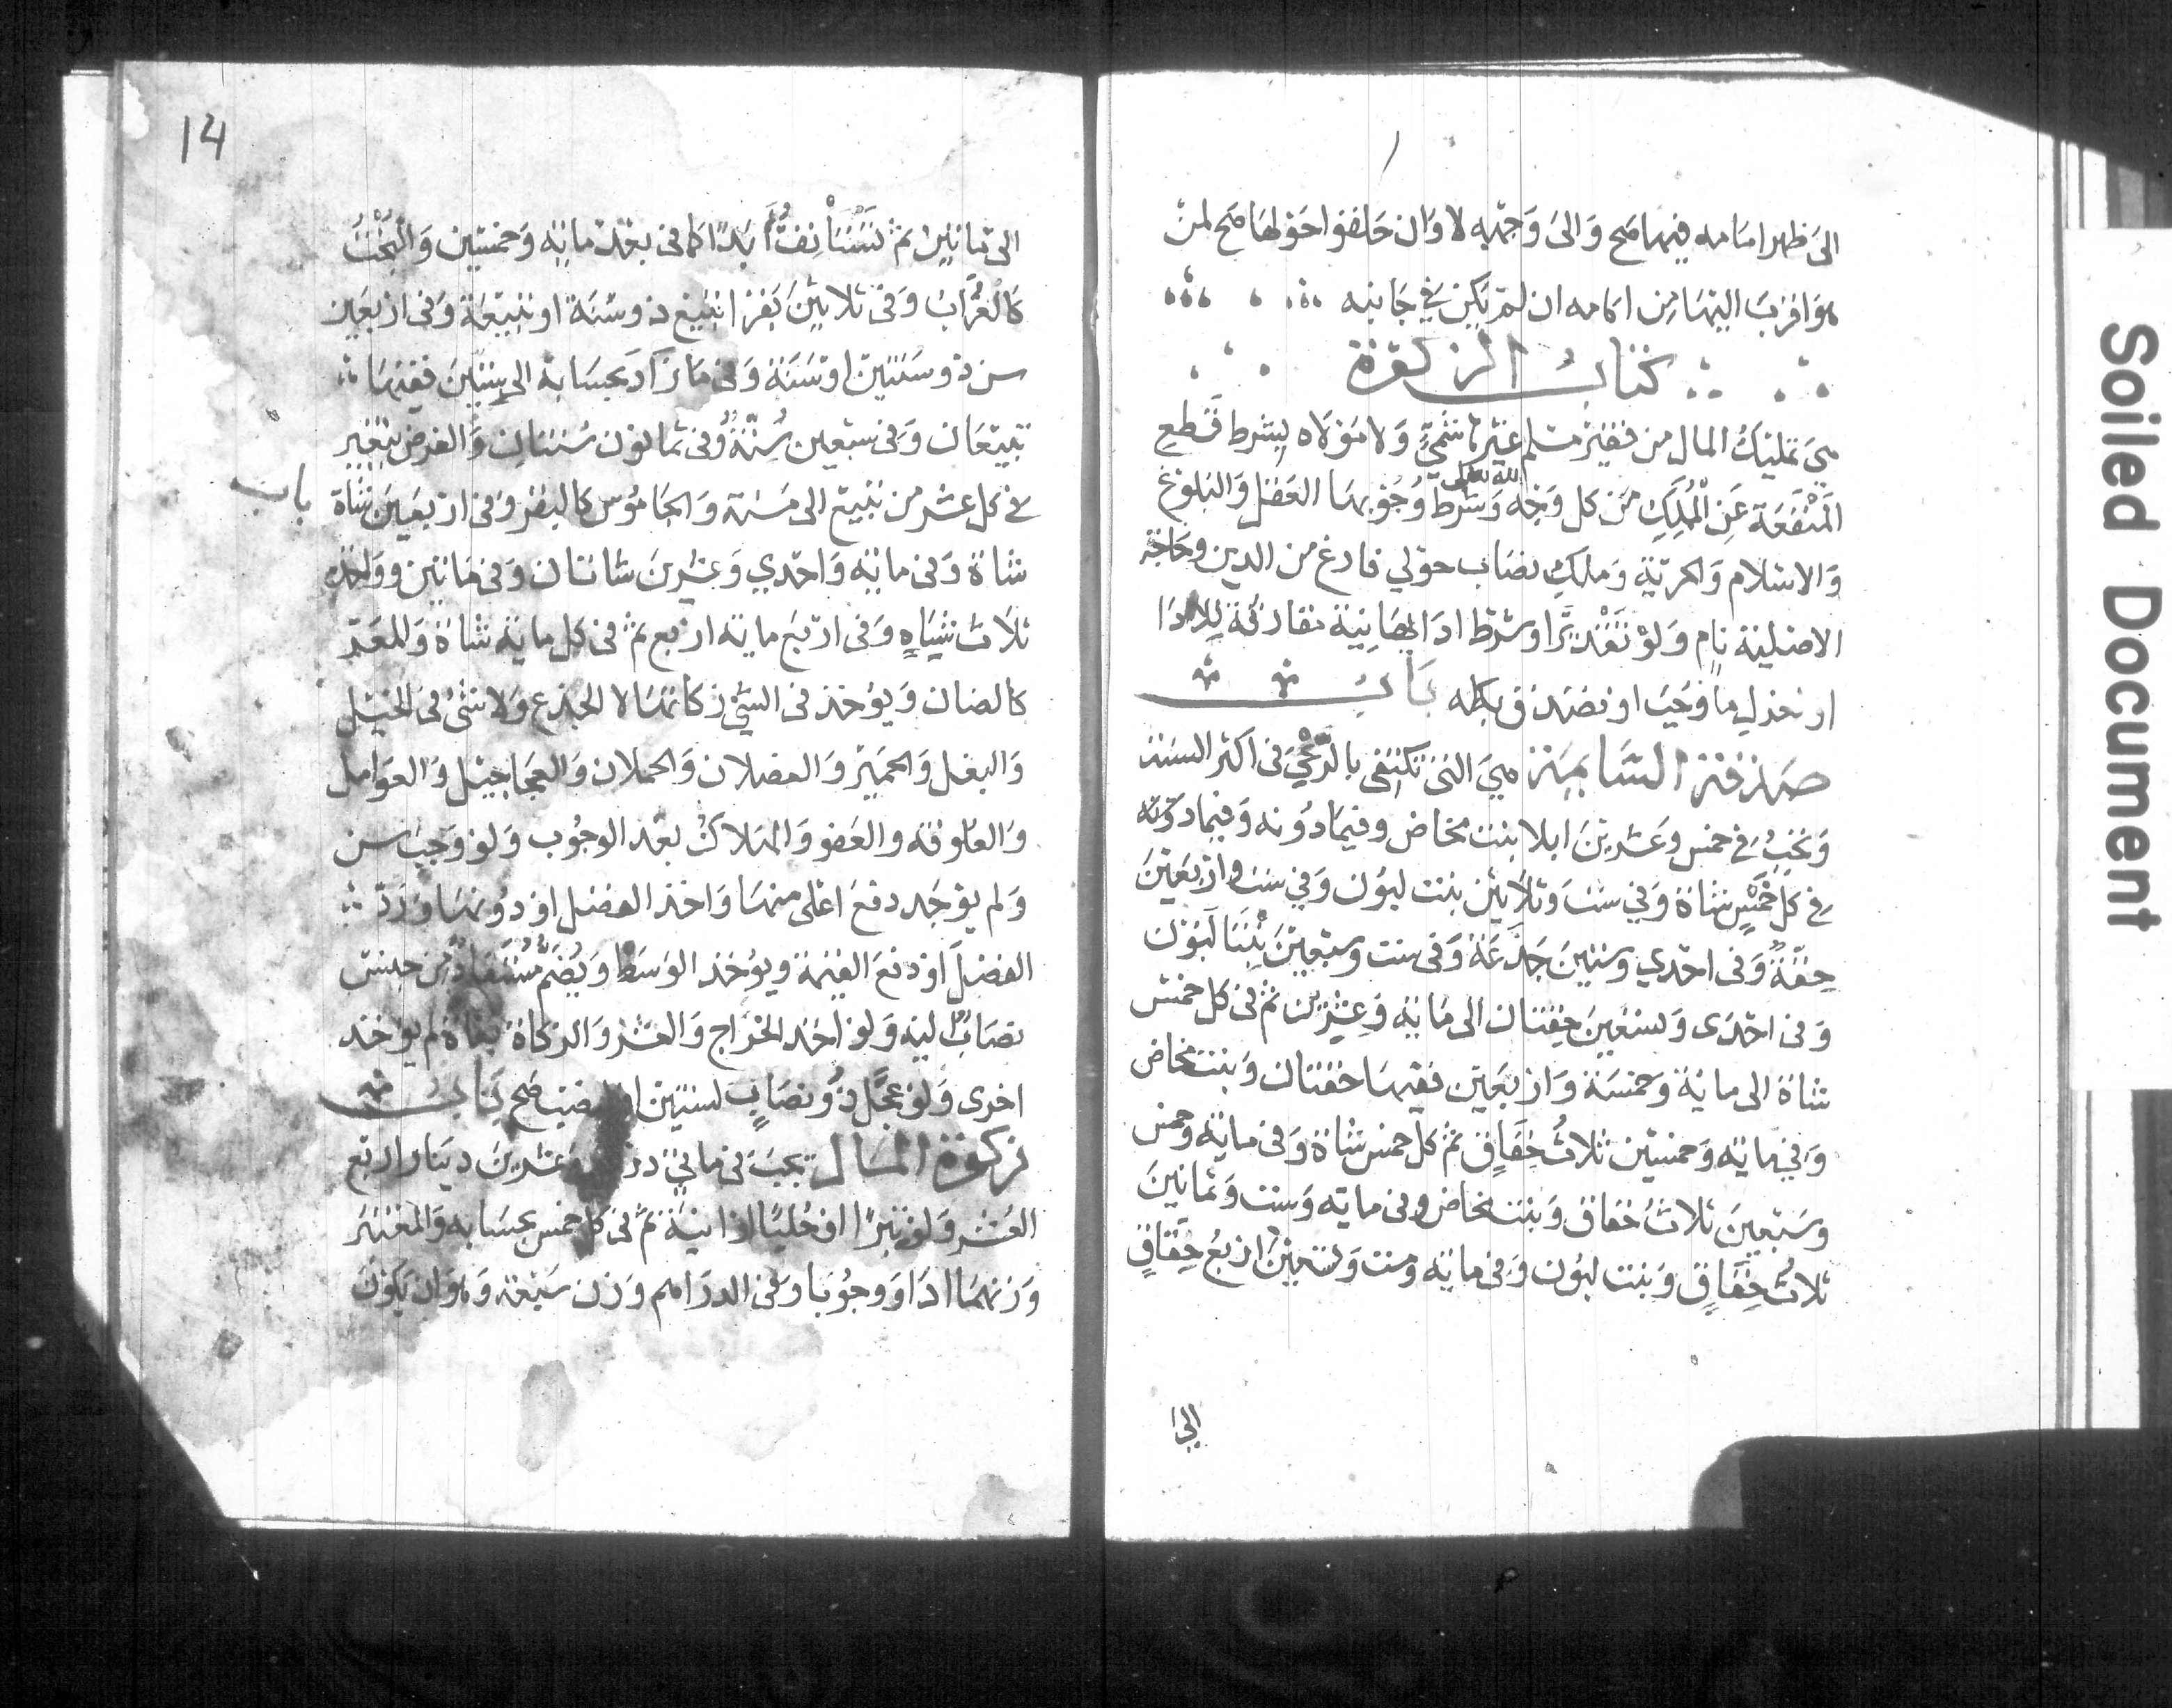 الى ظهر امامه فيها صح وَالىَ وَجهه لا وَان حَلقوا حَوْلها صَح لمنْ
هوَ اقرَبَ اليهَا مِن امامه ان لمْ يَكن فيْ جَانبه
كتاب الزكوة
هيَ تمليْكُ المال من فقيْر مسْلم غيْر هَاشميٍّ وَلا مَوْلاه بشرط قَطع
المَنْفَعَة عَنِ الْمُمَلِّكِ مِن كل وَجْه لله تعالى وَشَرط وُجُوبهَا العَقل وَالبلوغ
وَالاسْلام وَالحريّة وَملكِ نصَاب حوْلي فارغ من الدين وحَاجته
الاصْلية نامٍ وَلوْ تَقْديْرًا وشرْط ادَايهَا نيّة مقارنَة للادَا
اوْ لعَزل مَا وَجَبَ اوْ تصَدق بكله بَابُ
صدقة السَّايمَة هيَ التى تكتَفى بالرَّعْيَ فى اكثر السنة
وَيَجبُ فيْ خمس وَعشريْنَ ابلا بنت مخاض وفيمَا دُوْنه وَفيما دونه
فيْ كل خَمْسٍ شاة وَفيْ ستٍّ وَثلاثيْن بنت لبوُن وَفيْ ست وارْبَعيْنَ
حِقّةٌ وَفى احْدي وستيْنَ جَذَعَة وَفى ست وسَبْعيْنَ بنْتَا لَبوُن
وَفى احْدَى وَتسْعيْنَ حِقتان الى مَاية وَعِشْرين ثمّ فى كل خمْس
شاة الى ماية وَخمْسَة وَارْبَعيْن ففيْهَا حقتان وَبنت مخاض
وَفيْ ماية وَخمسيْن ثلاثُ حِقَاقٍ ثمّ كل خمس شاة وَفى ماية وَخمس
وسَبْعيْنَ ثلاثُ حقاق وَبنْت مخاض وفى ماية وَست وَثمانيْنَ
ثلاثُ حِقَاقٍ وَبنت لبوُن وَفى ماية وست وَتسْعيْنَ ارْبعُ حِقَاقٍ
الى
14
الى مائتين ثمّ تُسْتَأنفُ أَبَدًا كما فى بعْد ماية وَخمْسيْن وَالْبُخْتُ
كَالْعُرَّاب وَفى ثلاثيْنَ بَقرًا تبيْع ذو سَنَة او تبيْعَة وَفى ارْبعَيْن
مسن ذو سَنتيْن اوْ مسَنّة وَفى مَا زَادَ بحسَابه الى ستيْنَ ففيهَا
تبيْعَان وَفى سبْعين مُسِنّةٌ وَفى ثمانون مُسنتان وَالفرض يتغير
فيْ كل عشر من تبيْع الى مُسنة وَالجَاموُس كالبقر وَفى ارْبعَيْنَ شاة باب
شاة وَفى ماية وَاحْدي وَعشْريْنَ شاتان وَفى مايتين وَوَاحدة
ثلاث شيَاهٍ وَفى ارْبَع ماية ارْبع ثمّ فى كل ماية شاة وَالمعَز
كالضان وَيوُخذ فى الثنيّ زكاتهَا لا الجذع وَلا شَئ فى الخيْل
وَالبغل وَالحَميْر وَالفصلان وَالحملان وَالعجَاجيْل وَالعَوَامل
وَالعَلوفة والعَفو وَالهلاك بعْد الوجوُب وَلو وَجبَ سن
وَلم يوْجَد دفعَ اعْلى منهَا وَاخذ الفضْل اوْ دوُنهَا وَرَدّ
الفضلَ اوْ دفعَ القيمَة ويوُخذ الوَسَط وَيُضمّ مُسْتفادٌ من جنس
نصَابٍ اليه وَلوْ اخذ الخرَاج وَالعشْر وَالزكاة بغاة لم يوخذ
اخرى وَلوْ عجّل ذُو نصَابٍ لسنتيْن او لنصب صَح بَابُ
زكوة المَال يجبُ فى مائتي درهم وَعشْريْنَ دينَارا ربع
العُشر وَلوْ تبْرًا اوْ حُليًّا اوْ انيَة ثمّ فى كل خمس بحسَابه وَالمعْتبَر
وَزنهمَا ادَا وَوجوُبا وَفى الدرَاهم وَزن سَبْعَة وَهوَ ان يَكوْنَ
Soiled Document